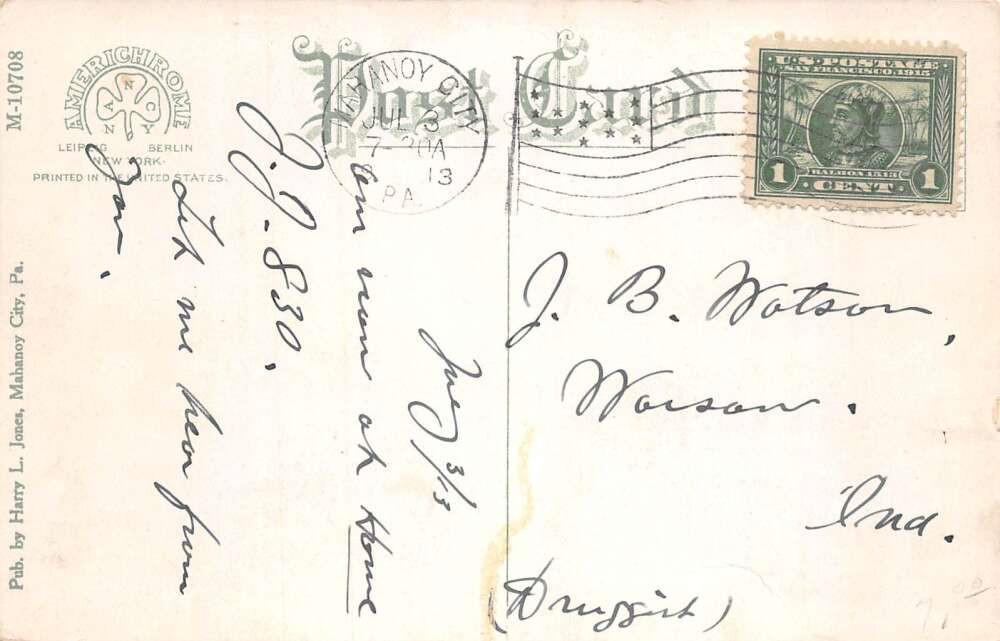 M-10708
Pub. by Harry L. Jones, Mahanoy City, Pa.
AMERICHROME
A N C
N Y
LEIPZIG BERLIN
NEW YORK.
PRINTED IN THE UNITED STATES.
Post Card
MAHANOY CITY
JUL 3
7-30A
13
PA.
U.S. POSTAGE
SAN FRANCISCO, 1915
BALBOA 1513
1 CENT 1
July 3/13
Am now at Home
J. J. 830.
Let me hear from
You.
J. B. Watson,
Warsaw.
Ind.
(Druggist)